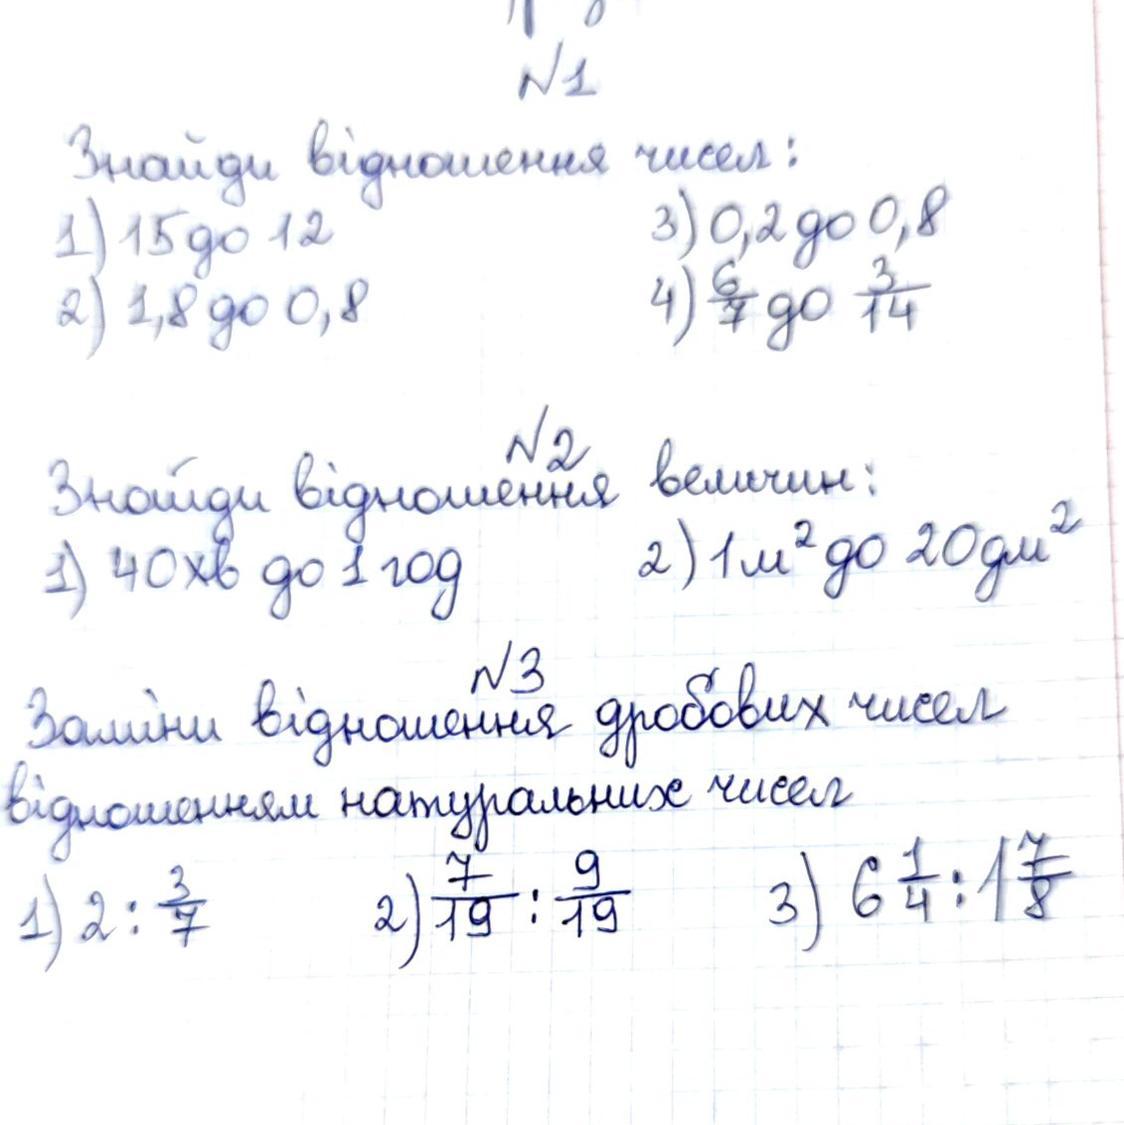 №1
Знайди відношення чисел:
1) 15 до 12 3) 0,2 до 0,8
2) 1,8 до 0,8 4) 6/7 до 3/14
№2
Знайди відношення величин:
1) 40 хв до 1 год 2) 1 м² до 20 дм²
№3
Заміни відношення дробових чисел
відношенням натуральних чисел
1) 2 : 3/7 2) 7/19 : 9/19 3) 6 1/4 : 1 7/8